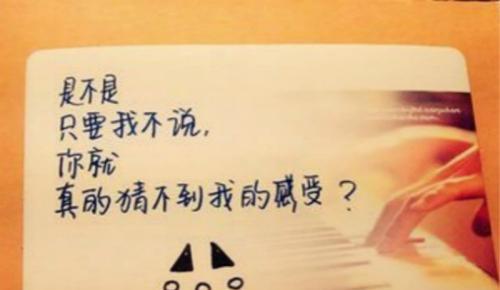 是不是
只要我不说,
你就
真的猜不到我的感受?